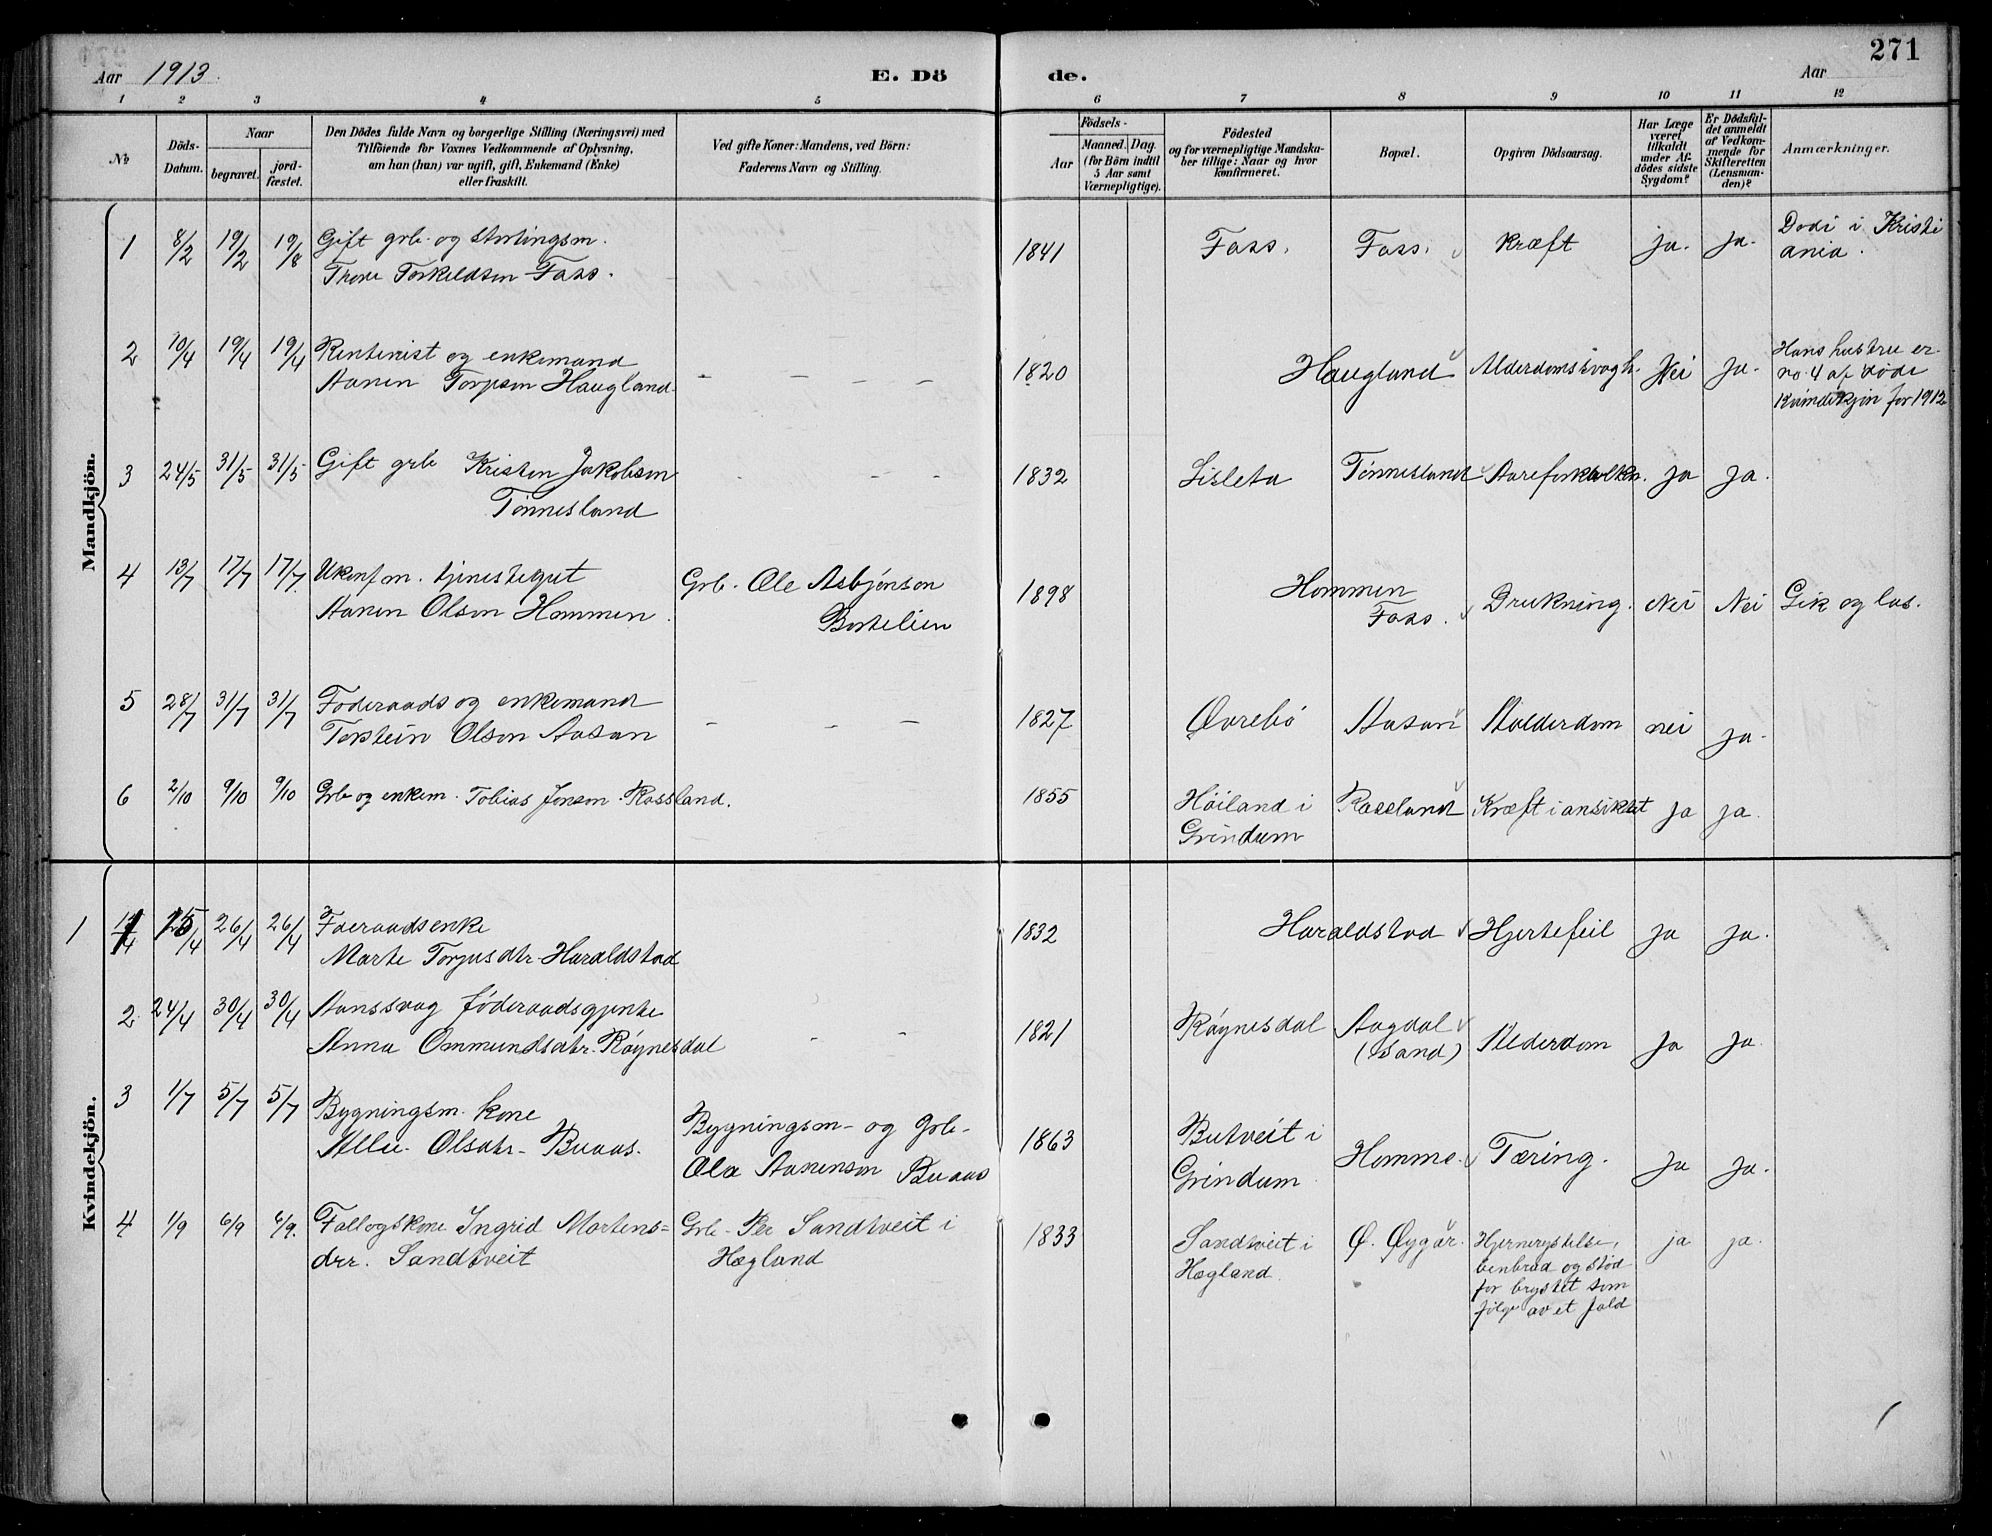 271
Aar 1913. E. Dö de. Aar
1 2 3 4 5 6 7 8 9 10 11 12
No
Döds-Datum.
Naar
begravet. jord-fæstet.
Den Dödes fulde Navn og borgerlige Stilling (Næringsvei) med
Tilföiende for Voxnes Vedkommende af Oplysning,
om han (hun) var ugift, gift, Enkemand (Enke)
eller fraskilt.
Ved gifte Koner: Mandens, ved Börn:
Faderens Navn og Stilling.
Födsels-
Aar
Maaned. Dag.
(for Börn indtil
5 Aar samt
Værnepligtige).
Födested
og for værnepligtige Mandska-
ber tillige: Naar og hvor
konfirmeret.
Bopæl.
Opgiven Dödsaarsag.
Har Læge
været
tilkaldt
under Af-
dödes sidste
Sygdom?
Er Dödsfal-
det anmeldt
af Vedkom-
mende for
Skifteretten
(Lensman-
den)?
Anmærkninger.
Mandkjön.
1 8/2 19/2 19/8 Gift grb. og Stortingsm. 1841 Foss. Foss. Kræft ja. ja. Dødi i Kristi
Thore Torkeldsen Foss. ania.
2 10/4 19/4 19/4 Rentenist og enkemand 1820 Haugland Alderdomssvagh. Nei ja. Hans hustru er
Aanen Torpsen Haugland no 4 af døde
Kvindekjøn for 1912
3 24/5 31/5 31/5 Gift grb Kristen Jakobsen 1832 Lisleta Tønnesland Aareforkalkn. ja ja.
Tønnesland
4 13/7 17/7 17/7. Ukonfm. tjenestegut Grb. Ole Asbjønson 1898 Hommen Drukning. Nei Nei Gik og las.
Aanen Olson Hommen. Bertelien Foss.
5 28/7 31/7 31/7 Føderaads og enkemand 1827 Øvrebø Aasan Alderdom nei ja.
Torstein Olson Aasan
6 2/10 9/10 9/10 Grb og enkem. Tobias Jonson Rossland. 1855 Høiland i Rossland Kræft i ansiktet ja ja.
Grindum
Kvindekjön.
1 15/4 26/4 26/4 Føderaadsenke 1832 Haraldstad Hjertefeil ja ja.
Marte Torjusdtr. Haraldstad
2 24/4 30/4 30/4 Aanssvag føderaadsgjente 1821 Røynesdal Aagdal Alderdom ja ja.
Anna Ommundsdtr. Røynesdal (Sand)
3 1/7 5/7 5/7 Bygningsm. kone Bygningsm- og Grb- 1863 Butveit i Homme. Tæring. ja ja.
Allie Olsdtr. Buaas. Ola Aanenson Buaas Grindum
4 1/9 6/9 6/9. Fallogskone Ingrid Mortens= Grb- Per Sandtveit i 1833 Sandtveit i Ø. Øygar. Hjernerystelse, ja ja.
drr. Sandtveit Hægland Hægland. benbrud og stød
for brystet som
følge av et fald